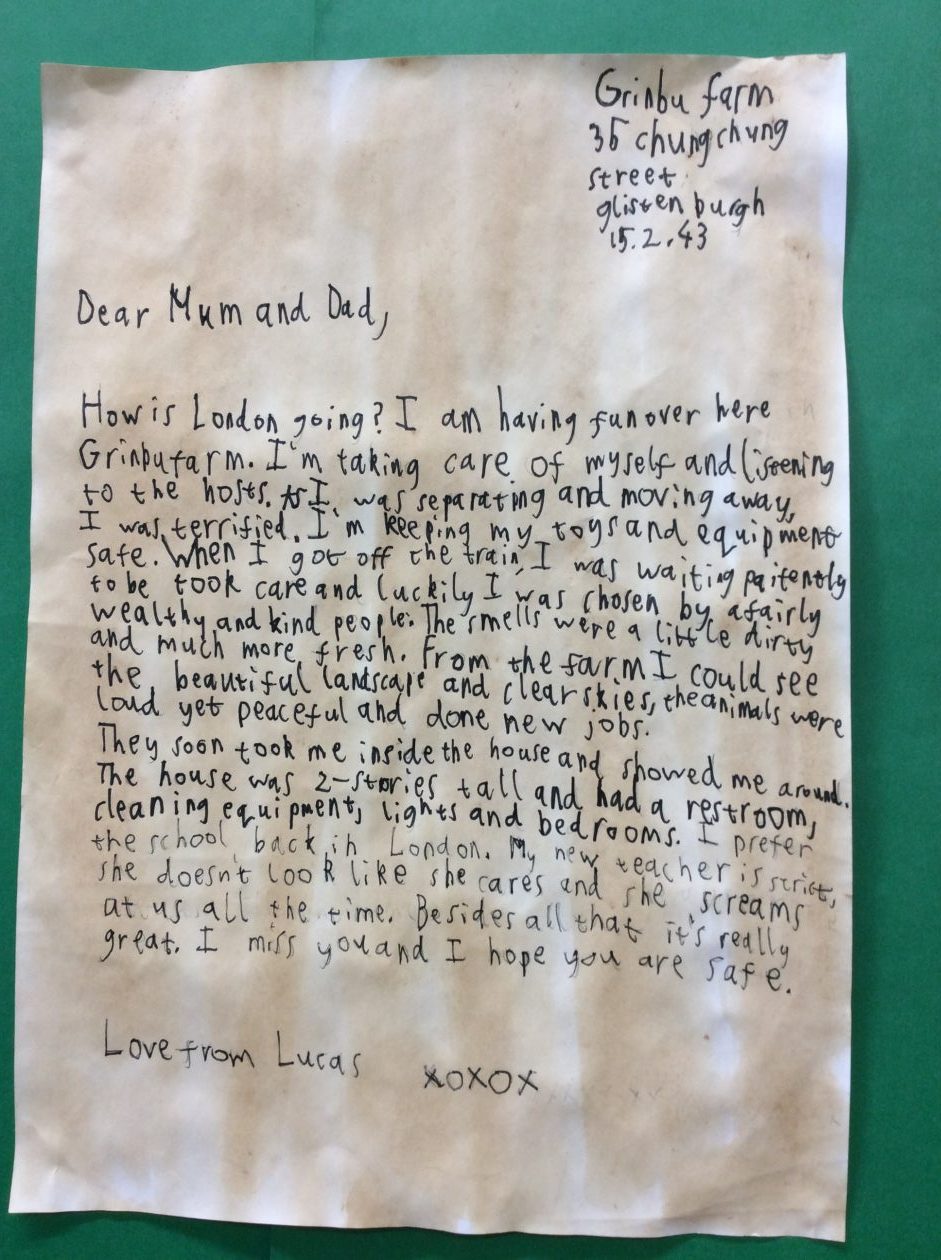 Grinbu farm
36 chungchung
street
glisten burgh
15.2.43
Dear Mum and Dad,
How is London going? I am having fun over here
Grinbufarm. I'm taking care of myself and listening
to the hosts. As I was separating and moving away,
I was terrified. I'm keeping my toys and equipment
safe. When I got off the train, I was waiting paitently
to be took care and luckily I was chosen by a fairly
wealthy and kind people. The smells were a little dirty
and much more fresh. From the farm I could see
the beautiful landscape and clear skies, the animals were
loud yet peaceful and done new jobs.
They soon took me inside the house and showed me around.
The house was 2-stories tall and had a restroom,
cleaning equipment, lights and bedrooms. I prefer
the school back in London. My new teacher is strict,
she doesn't look like she cares and she screams
at us all the time. Besides all that it's really
great. I miss you and I hope you are safe.
Love from Lucas
xoxox